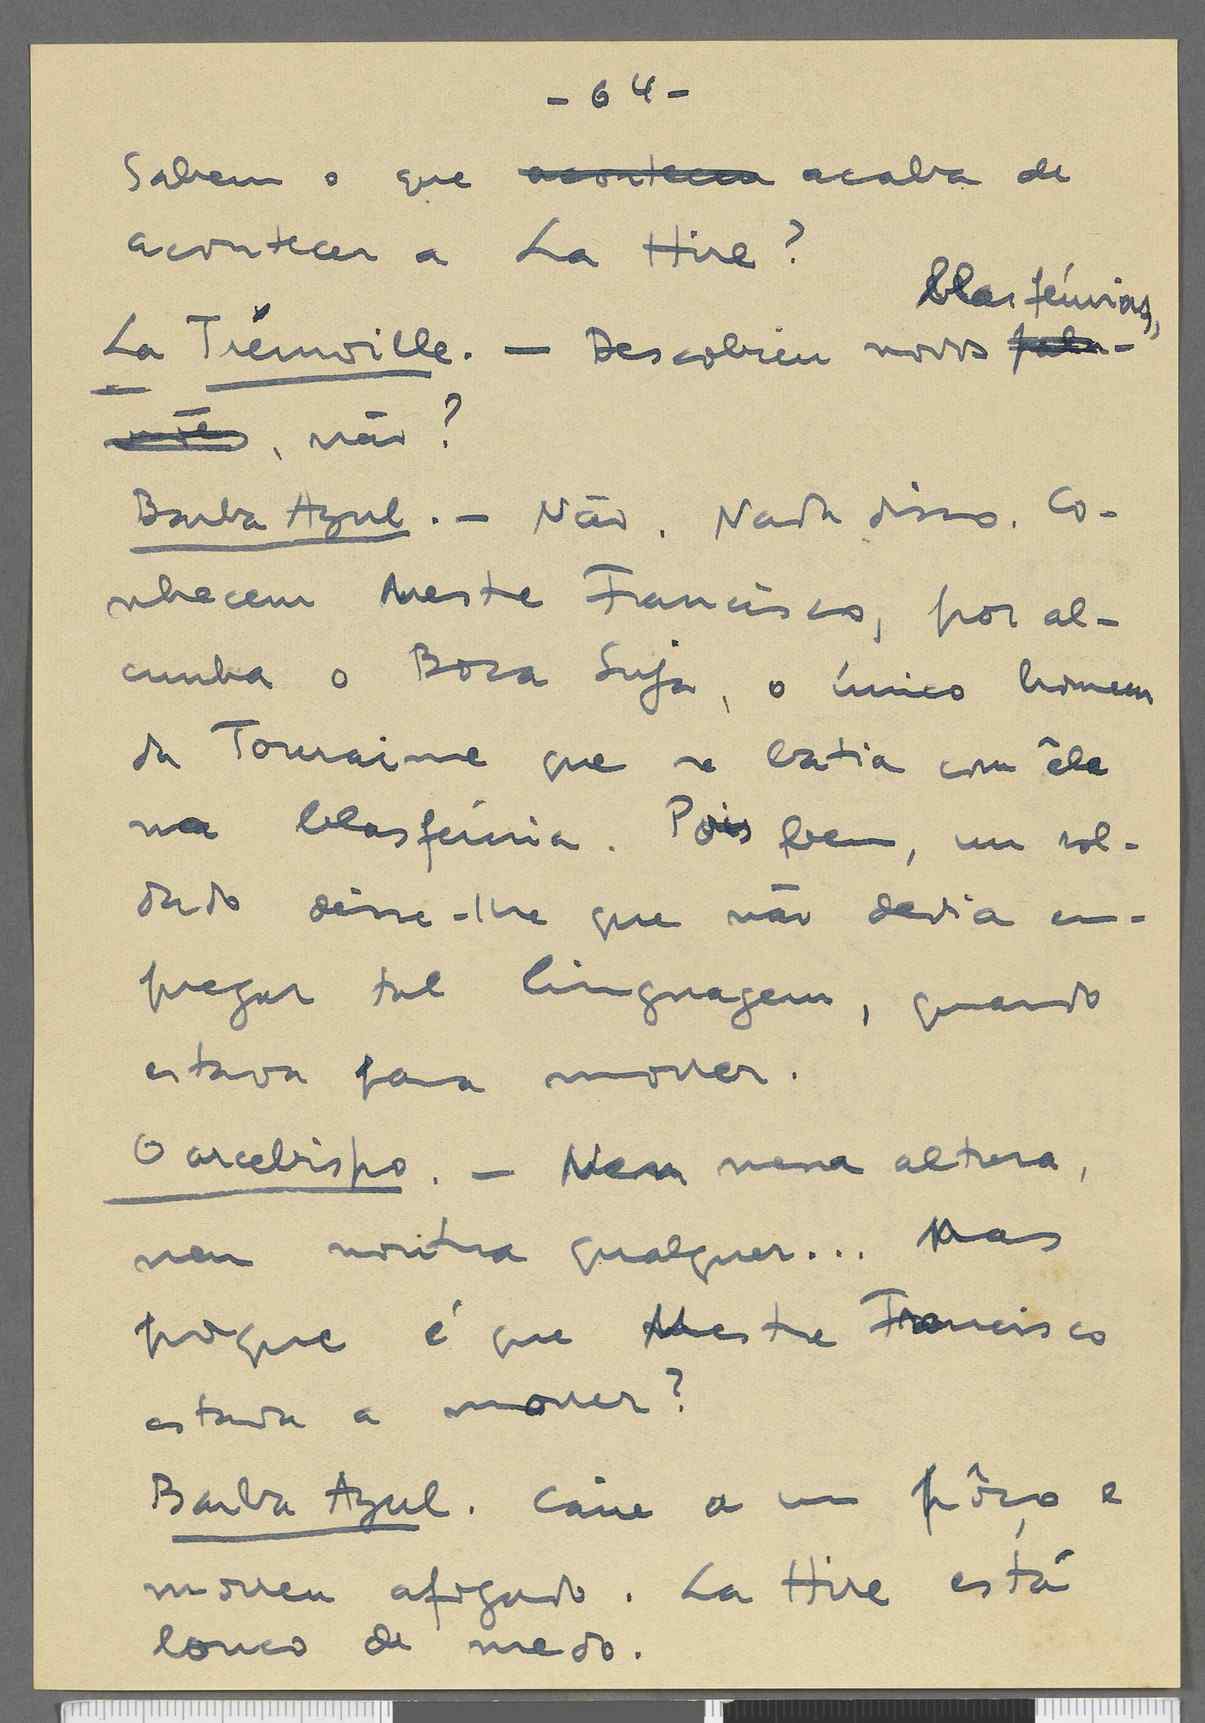 - 64 -
Sabem o que aconteceu acaba de
acontecer a La Hire?
blasfémias,
La Trémoille. — Descobriu novos pala-
vrões, não?
Barba Azul. — Não. Nada disso. Co-
nhecem Mestre Francisco, por al-
cunha o Boca Suja, o único homem
da Touraine que se batia com êle
na blasfémia. Pois bem, um sol-
dado disse-lhe que não devia em-
pregar tal linguagem, quando
estava para morrer.
O arcebispo. — Nem nessa altura,
nem noutra qualquer... Mas
porque é que Mestre Francisco
estava a morrer?
Barba Azul. Caiu a um pôço e
morreu afogado. La Hire está
louco de medo.